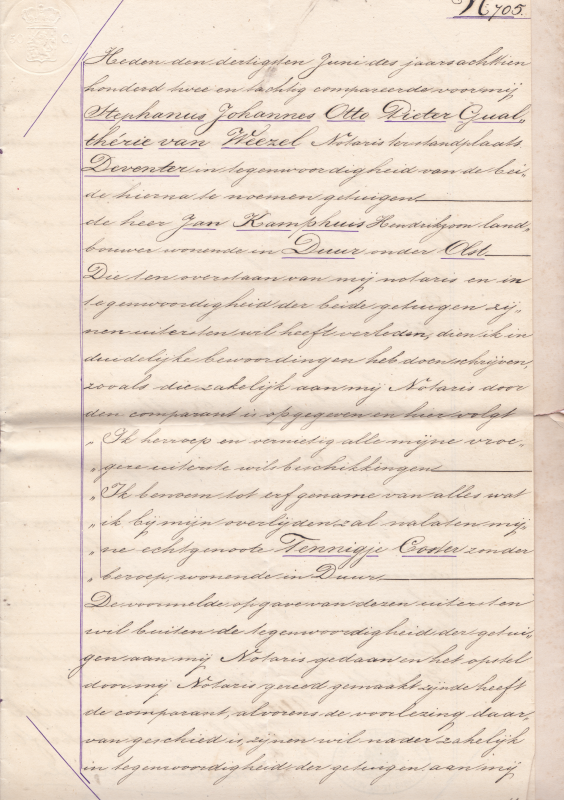 N 705.
Heden den dertigsten Juni des jaars achttien
honderd twee en tachtig compareerde voor mij
Stephanus Johannes Otto Pieter Qual-
thérie van Weezel Notaris ter standplaats
Deventer in tegenwoordigheid van de bei-
de hierna te noemen getuigen
de heer Jan Kamphuis Hendrikzoon land-
bouwer wonende in Duur onder Olst
Die ten overstaan van mij notaris en in
tegenwoordigheid der beide getuigen zij-
nen uitersten wil heeft verleden, dien ik in
duidelijke bewoordingen heb doen schrijven,
zooals die zakelijk aan mij Notaris door
den comparant is opgegeven en hier volgt
„ Ik herroep en vernietig alle mijne vroe-
„ gere uiterste wilsbeschikkingen
„ Ik benoem tot erfgename van alles wat
„ ik bij mijn overlijden zal nalaten mij-
„ ne echtgenoote Tennigje Coster zonder
„ beroep, wonende in Duur
De voormelde opgave van dezen uitersten
wil buiten de tegenwoordigheid der getui-
gen aan mij Notaris gedaan en het opstel
door mij Notaris gereed gemaakt zijnde heeft
de comparant, alvorens de voorlezing daar-
van geschied is, zijnen wil nader zakelijk
in tegenwoordigheid der getuigen aan mij